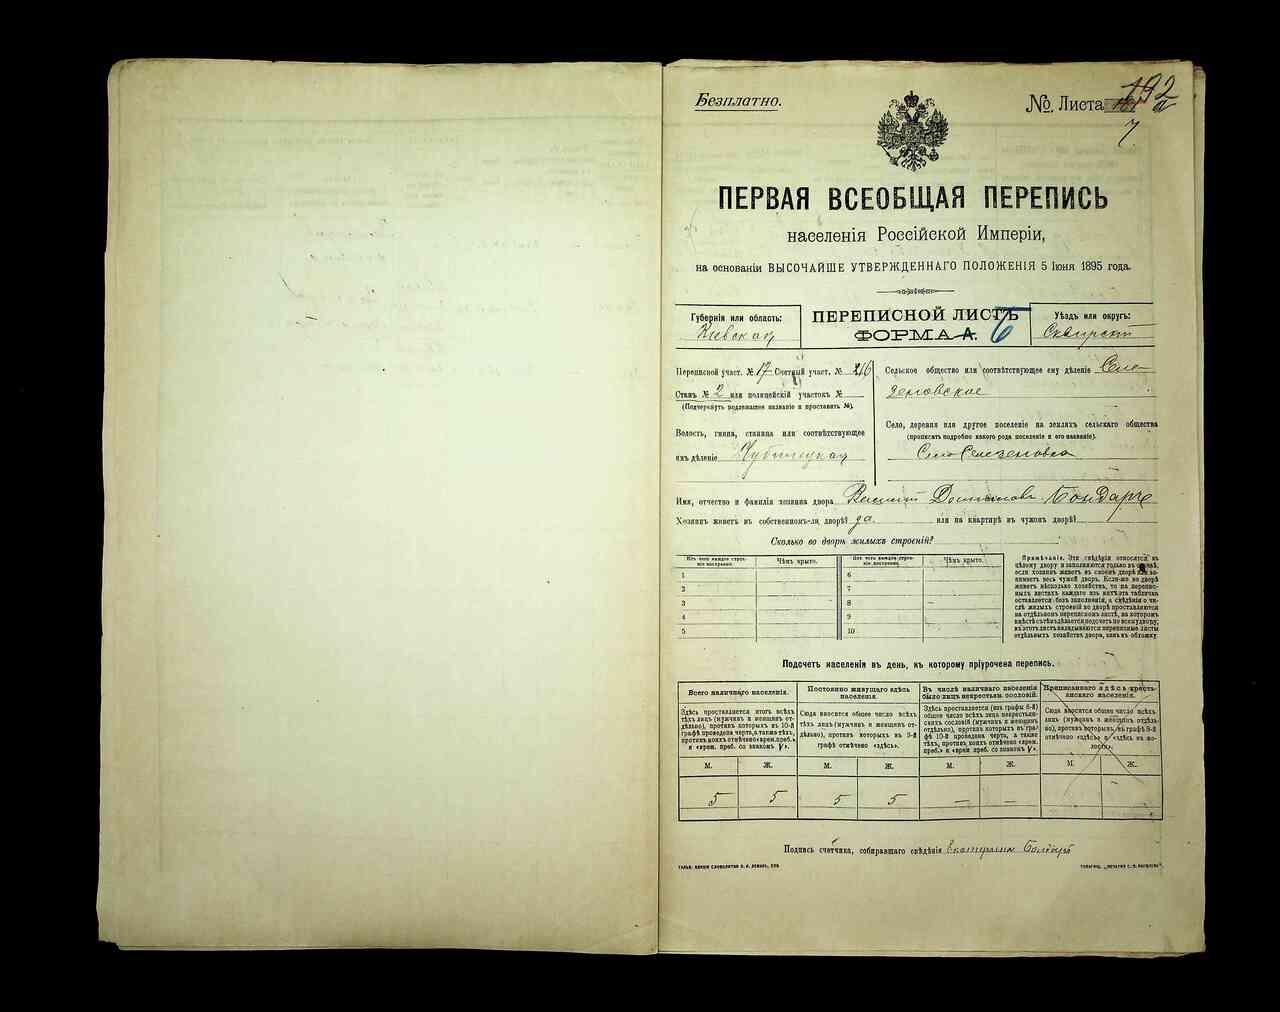 Безплатно.
№. Листа 192
а
7
ПЕРВАЯ ВСЕОБЩАЯ ПЕРЕПИСЬ
населенія Россійской Имперіи,
на основаніи ВЫСОЧАЙШЕ УТВЕРЖДЕННАГО ПОЛОЖЕНІЯ 5 Іюня 1895 года.
Губернія или область:
Кіевская
ПЕРЕПИСНОЙ ЛИСТЪ
ФОРМА А. Б
Уѣздъ или округъ:
Сквирскій
Переписной участ. № 17 Счетный участ. №
Станъ № 2 или полицейскій участокъ №
(Подчеркнуть подлежащее названіе и проставить №).
Волость, гмина, станица или соотвѣтствующее
имъ дѣленіе
Сельское общество или соотвѣтствующее ему дѣленіе Селе-
зеновское
Село, деревня или другое поселеніе на земляхъ сельскаго общества
(прописать подробно какого рода поселеніе и его названіе).
Село Селезеновка
Имя, отчество и фамилія хозяина двора Василій Бондарь
Хозяинъ живетъ въ собственномъ-ли дворѣ? да. или на квартирѣ въ чужомъ дворѣ?
Сколько во дворѣ жилыхъ строеній?
Изъ чего каждое строе-
ніе построено.
Чѣмъ крыто.
1
2
3
4
5
Изъ чего каждое строе-
ніе построено.
Чѣмъ крыто.
6
7
8
9
10
Примѣчаніе. Эти свѣдѣнія относятся къ
цѣлому двору и заполняются только въ
если хозяинъ живетъ въ своемъ дворѣ или за-
нимаетъ весь чужой дворъ. Если-же во дворѣ
живетъ нѣсколько хозяйствъ, то на перепис-
ныхъ листахъ каждаго изъ нихъ эта табличка
оставляется безъ заполненія, а свѣдѣнія о чи-
слѣ жилыхъ строеній во дворѣ проставляются
на отдѣльномъ переписномъ листѣ, на которомъ
вмѣстѣ съ тѣмъ дѣлается подсчетъ по всему двору;
въ этотъ листъ вкладываются переписные листы
отдѣльныхъ хозяйствъ двора, какъ въ обложку.
Подсчетъ населенія въ день, къ которому пріурочена перепись.
Всего наличнаго населенія.
Здѣсь проставляется итогъ всѣхъ
тѣхъ лицъ (мужчинъ и женщинъ от-
дѣльно), противъ которыхъ въ 10-й
графѣ проведена черта, а также тѣхъ,
противъ коихъ отмѣчено «врем. преб.»
и «врем. преб. со знакомъ V».
М. Ж.
5 5
Постоянно живущаго здѣсь
населенія.
Сюда вносится общее число всѣхъ
тѣхъ лицъ (мужчинъ и женщинъ от-
дѣльно), противъ которыхъ въ 9-й
графѣ отмѣчено «здѣсь».
М. Ж.
5 5
Въ числѣ наличнаго населенія
было лицъ некрестьян. сословій.
Здѣсь проставляется (изъ графы 8-й)
общее число всѣхъ лицъ некрестьян-
скихъ сословій (мужчинъ и женщинъ
отдѣльно), противъ которыхъ въ гра-
фѣ 10-й проведена черта, а также
тѣхъ, противъ коихъ отмѣчено «врем.
преб.» и «врем. преб. со знакомъ V».
М. Ж.
— —
Приписаннаго здѣсь кресть-
янскаго населенія.
Сюда вносится общее число всѣхъ
лицъ (мужчинъ и женщинъ отдѣль-
но), противъ которыхъ въ графѣ 8-й
отмѣчено «здѣсь» и «здѣсь въ во-
лости».
М. Ж.
Подпись счетчика, собиравшаго свѣдѣнія Екатерина Бондарь